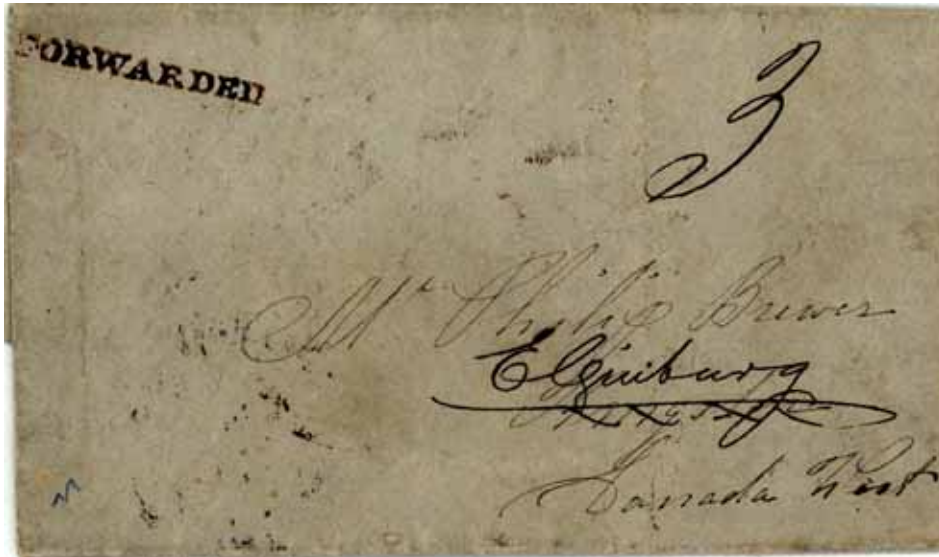 FORWARDED
3
Mr Philip Brewer
Elginburg
Canada West